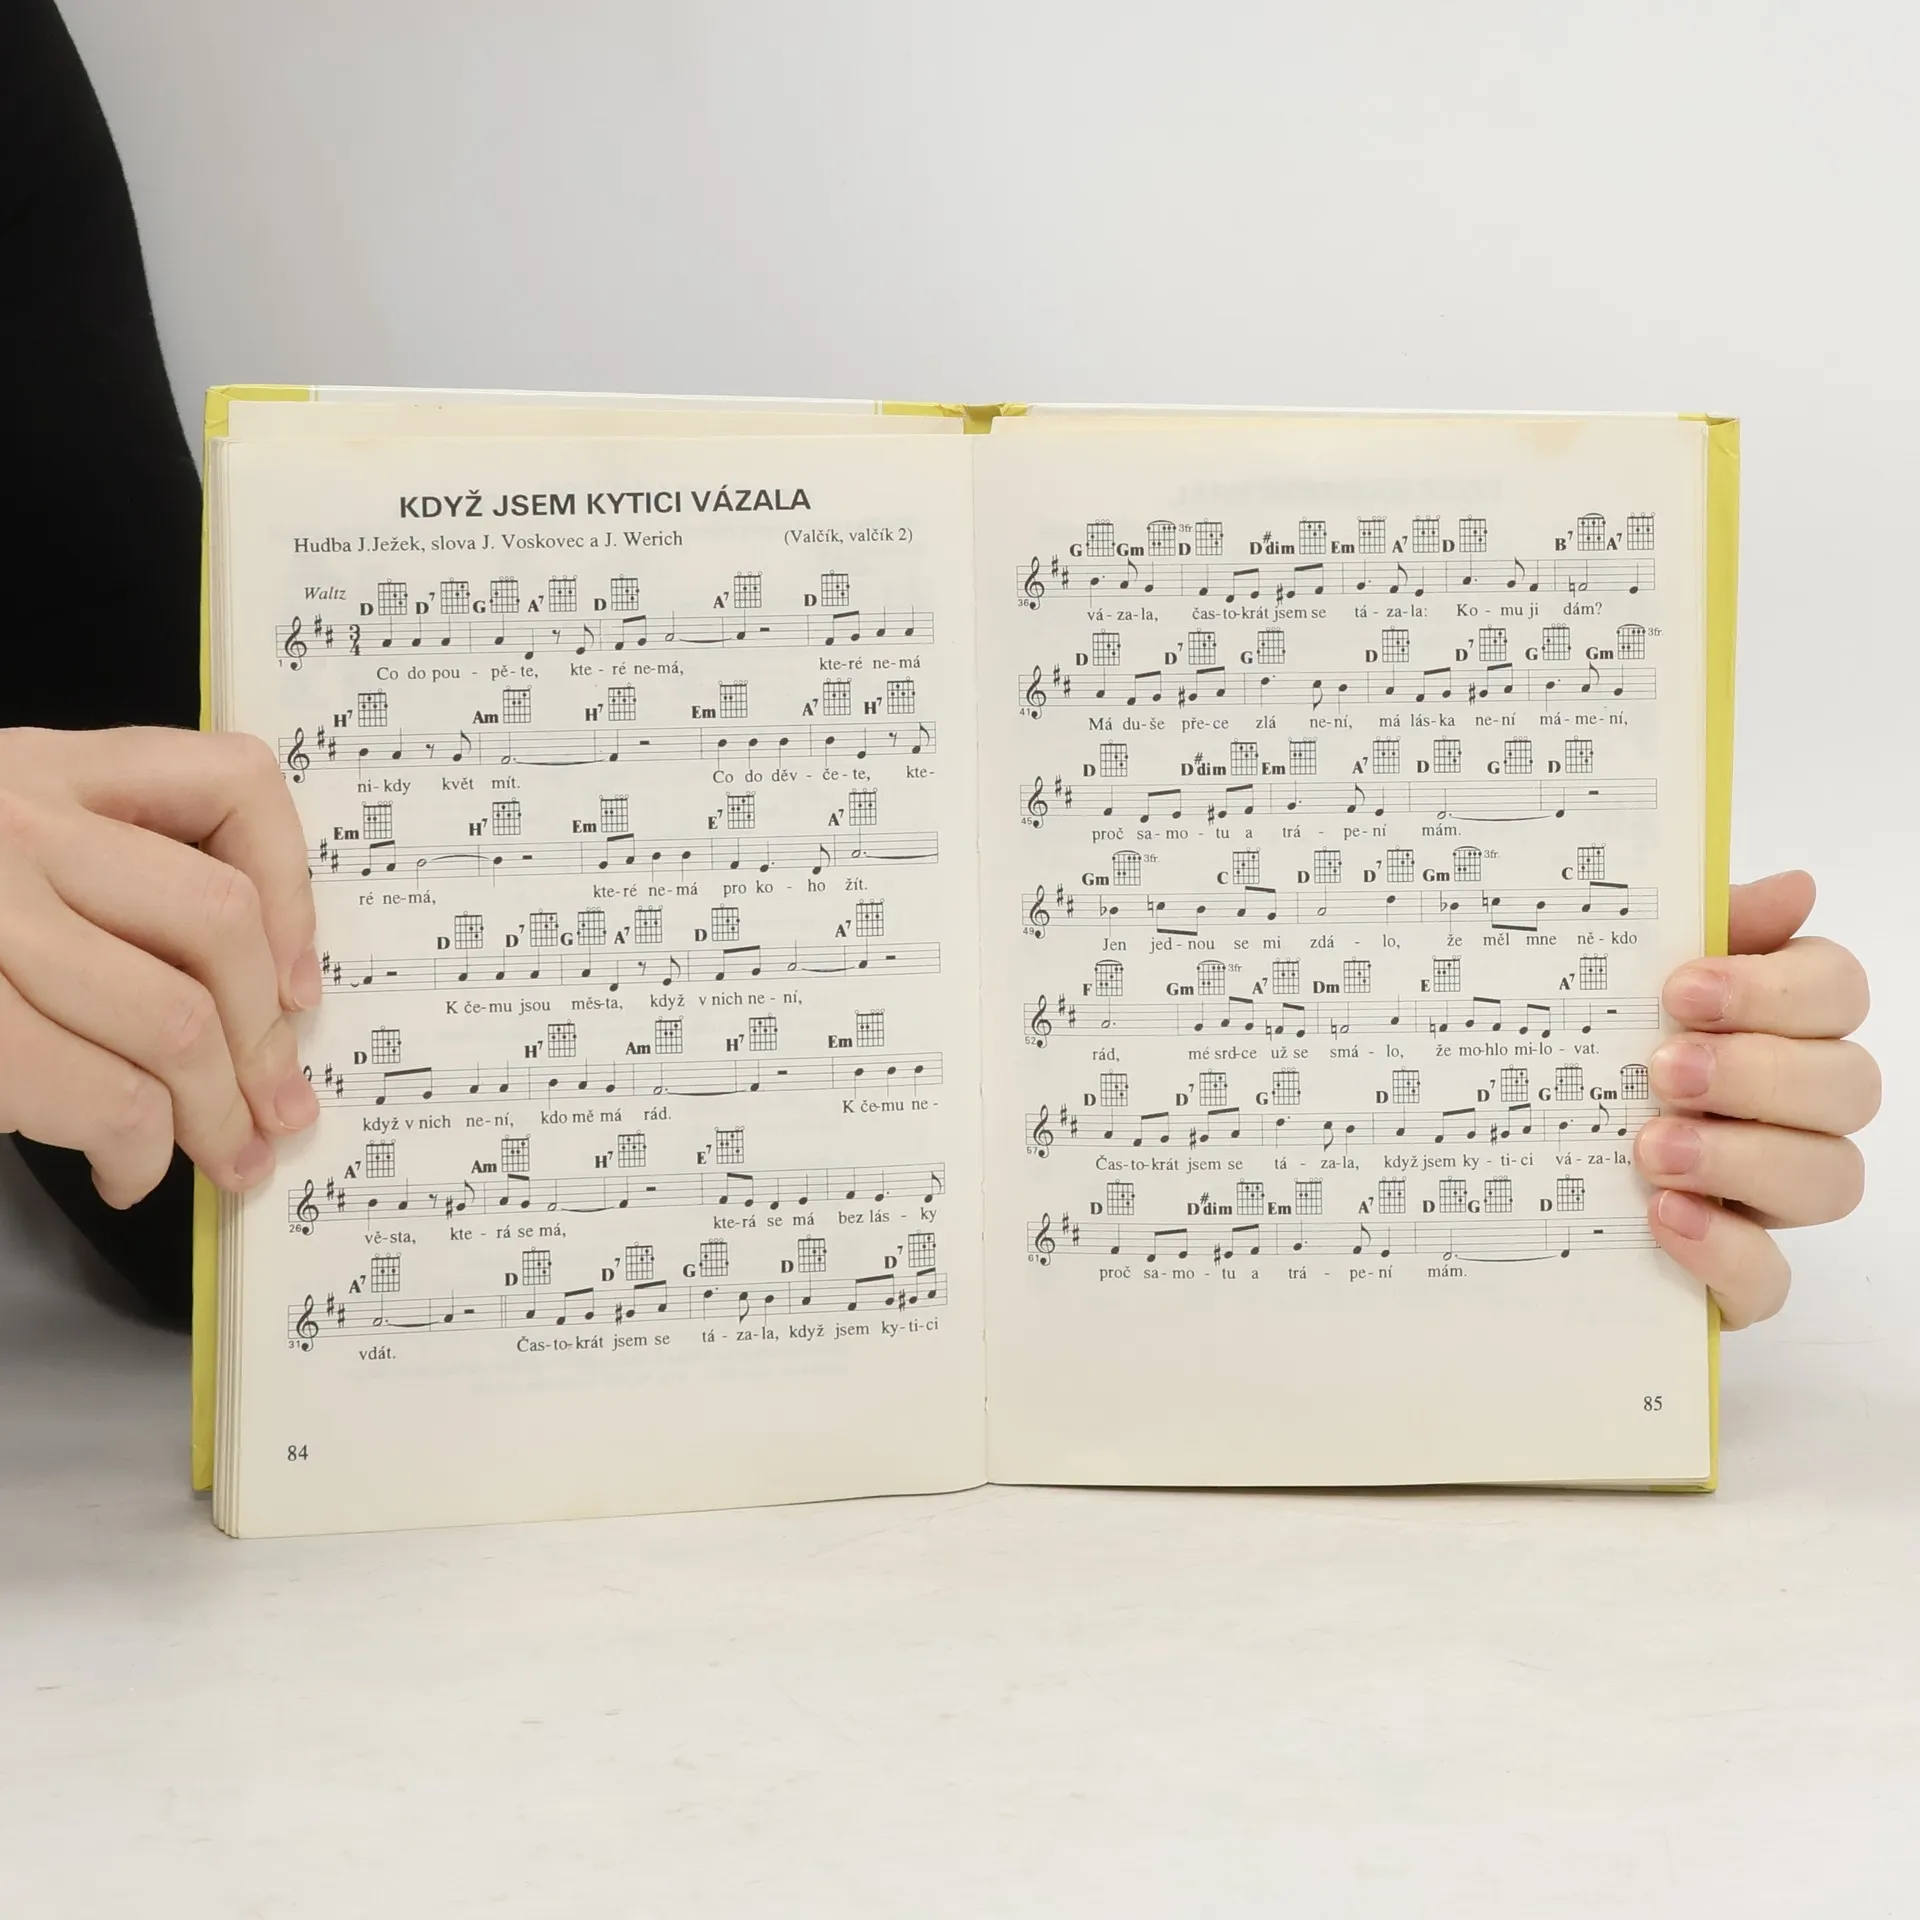 KDYŽ JSEM KYTICI VÁZALA
Hudba J.Ježek, slova J. Voskovec a J. Werich (Valčík, valčík 2)
Waltz D D7 G A7 D A7 D
3 4
1
Co do pou - pě - te, kte - ré ne-má, kte-ré ne-má
H7 Am H7 Em A7 H7
ni - kdy květ mít. Co do děv - če - te, kte-
Em H7 Em E7 A7
ré ne-má, kte-ré ne-má pro ko - ho žít.
D D7 G A7 D A7
K če-mu jsou měs-ta, když v nich ne - ní,
D H7 Am H7 Em
když v nich ne - ní, kdo mě má rád. K če-mu ne -
A7 Am H7 E7
26
vě-sta, kte - rá se má, kte-rá se má bez lás - ky
A7 D D7 G D D7
31
vdát. Čas-to-krát jsem se tá - za-la, když jsem ky-ti-ci
84
G Gm 3fr. D D#dim Em A7 D B7 A7
36
vá - za-la, čas-to-krát jsem se tá - za-la: Ko - mu ji dám?
D D7 G D D7 G Gm 3fr.
41
Má du-še pře-ce zlá ne-ní, má lás-ka ne-ní má-me-ní,
D D#dim Em A7 D G D
45
proč sa-mo - tu a trá - pe-ní mám.
Gm 3fr. C D D7 Gm 3fr. C
49
Jen jed-nou se mi zdá - lo, že měl mne ně-kdo
F Gm 3fr A7 Dm E A7
52
rád, mé srd-ce už se smá - lo, že mo-hlo mi-lo - vat.
D D7 G D D7 G Gm
57
Čas-to-krát jsem se tá - za-la, když jsem ky - ti-ci vá - za-la,
D D#dim Em A7 D G D
61
proč sa-mo - tu a trá - pe-ní mám.
85